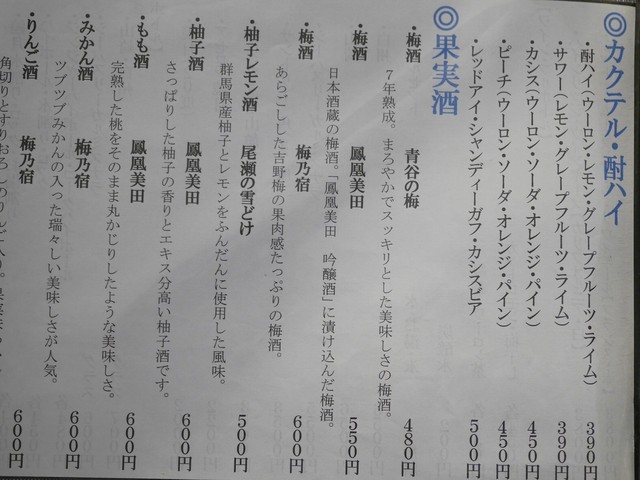 ◎カクテル・酎ハイ
・酎ハイ(ウーロン・レモン・グレープフルーツ・ライム) 390円
・サワー(レモン・グレープフルーツ・ライム) 390円
・カシス(ウーロン・ソーダ・オレンジ・パイン) 450円
・ピーチ(ウーロン・ソーダ・オレンジ・パイン) 450円
・レッドアイ・シャンディーガフ・カシスビア 500円
◎果実酒
・梅酒 青谷の梅 480円
7年熟成。まろやかでスッキリとした美味しさの梅酒。
・梅酒 鳳凰美田 550円
日本酒蔵の梅酒。「鳳凰美田 吟醸酒」に漬け込んだ梅酒。
・梅酒 梅乃宿 600円
あらごしした吉野梅の果肉感たっぷりの梅酒。
・柚子レモン酒 尾瀬の雪どけ 500円
群馬県産柚子とレモンをふんだんに使用した風味。
・柚子酒 鳳凰美田 600円
さっぱりした柚子の香りとエキス分高い柚子酒です。
・もも酒 鳳凰美田 600円
完熟した桃をそのまま丸かじりしたような美味しさ。
・みかん酒 梅乃宿 600円
ツブツブみかんの入った瑞々しい美味しさが人気。
・りんご酒 梅乃宿 600円
角切りとすりおろしのりんご